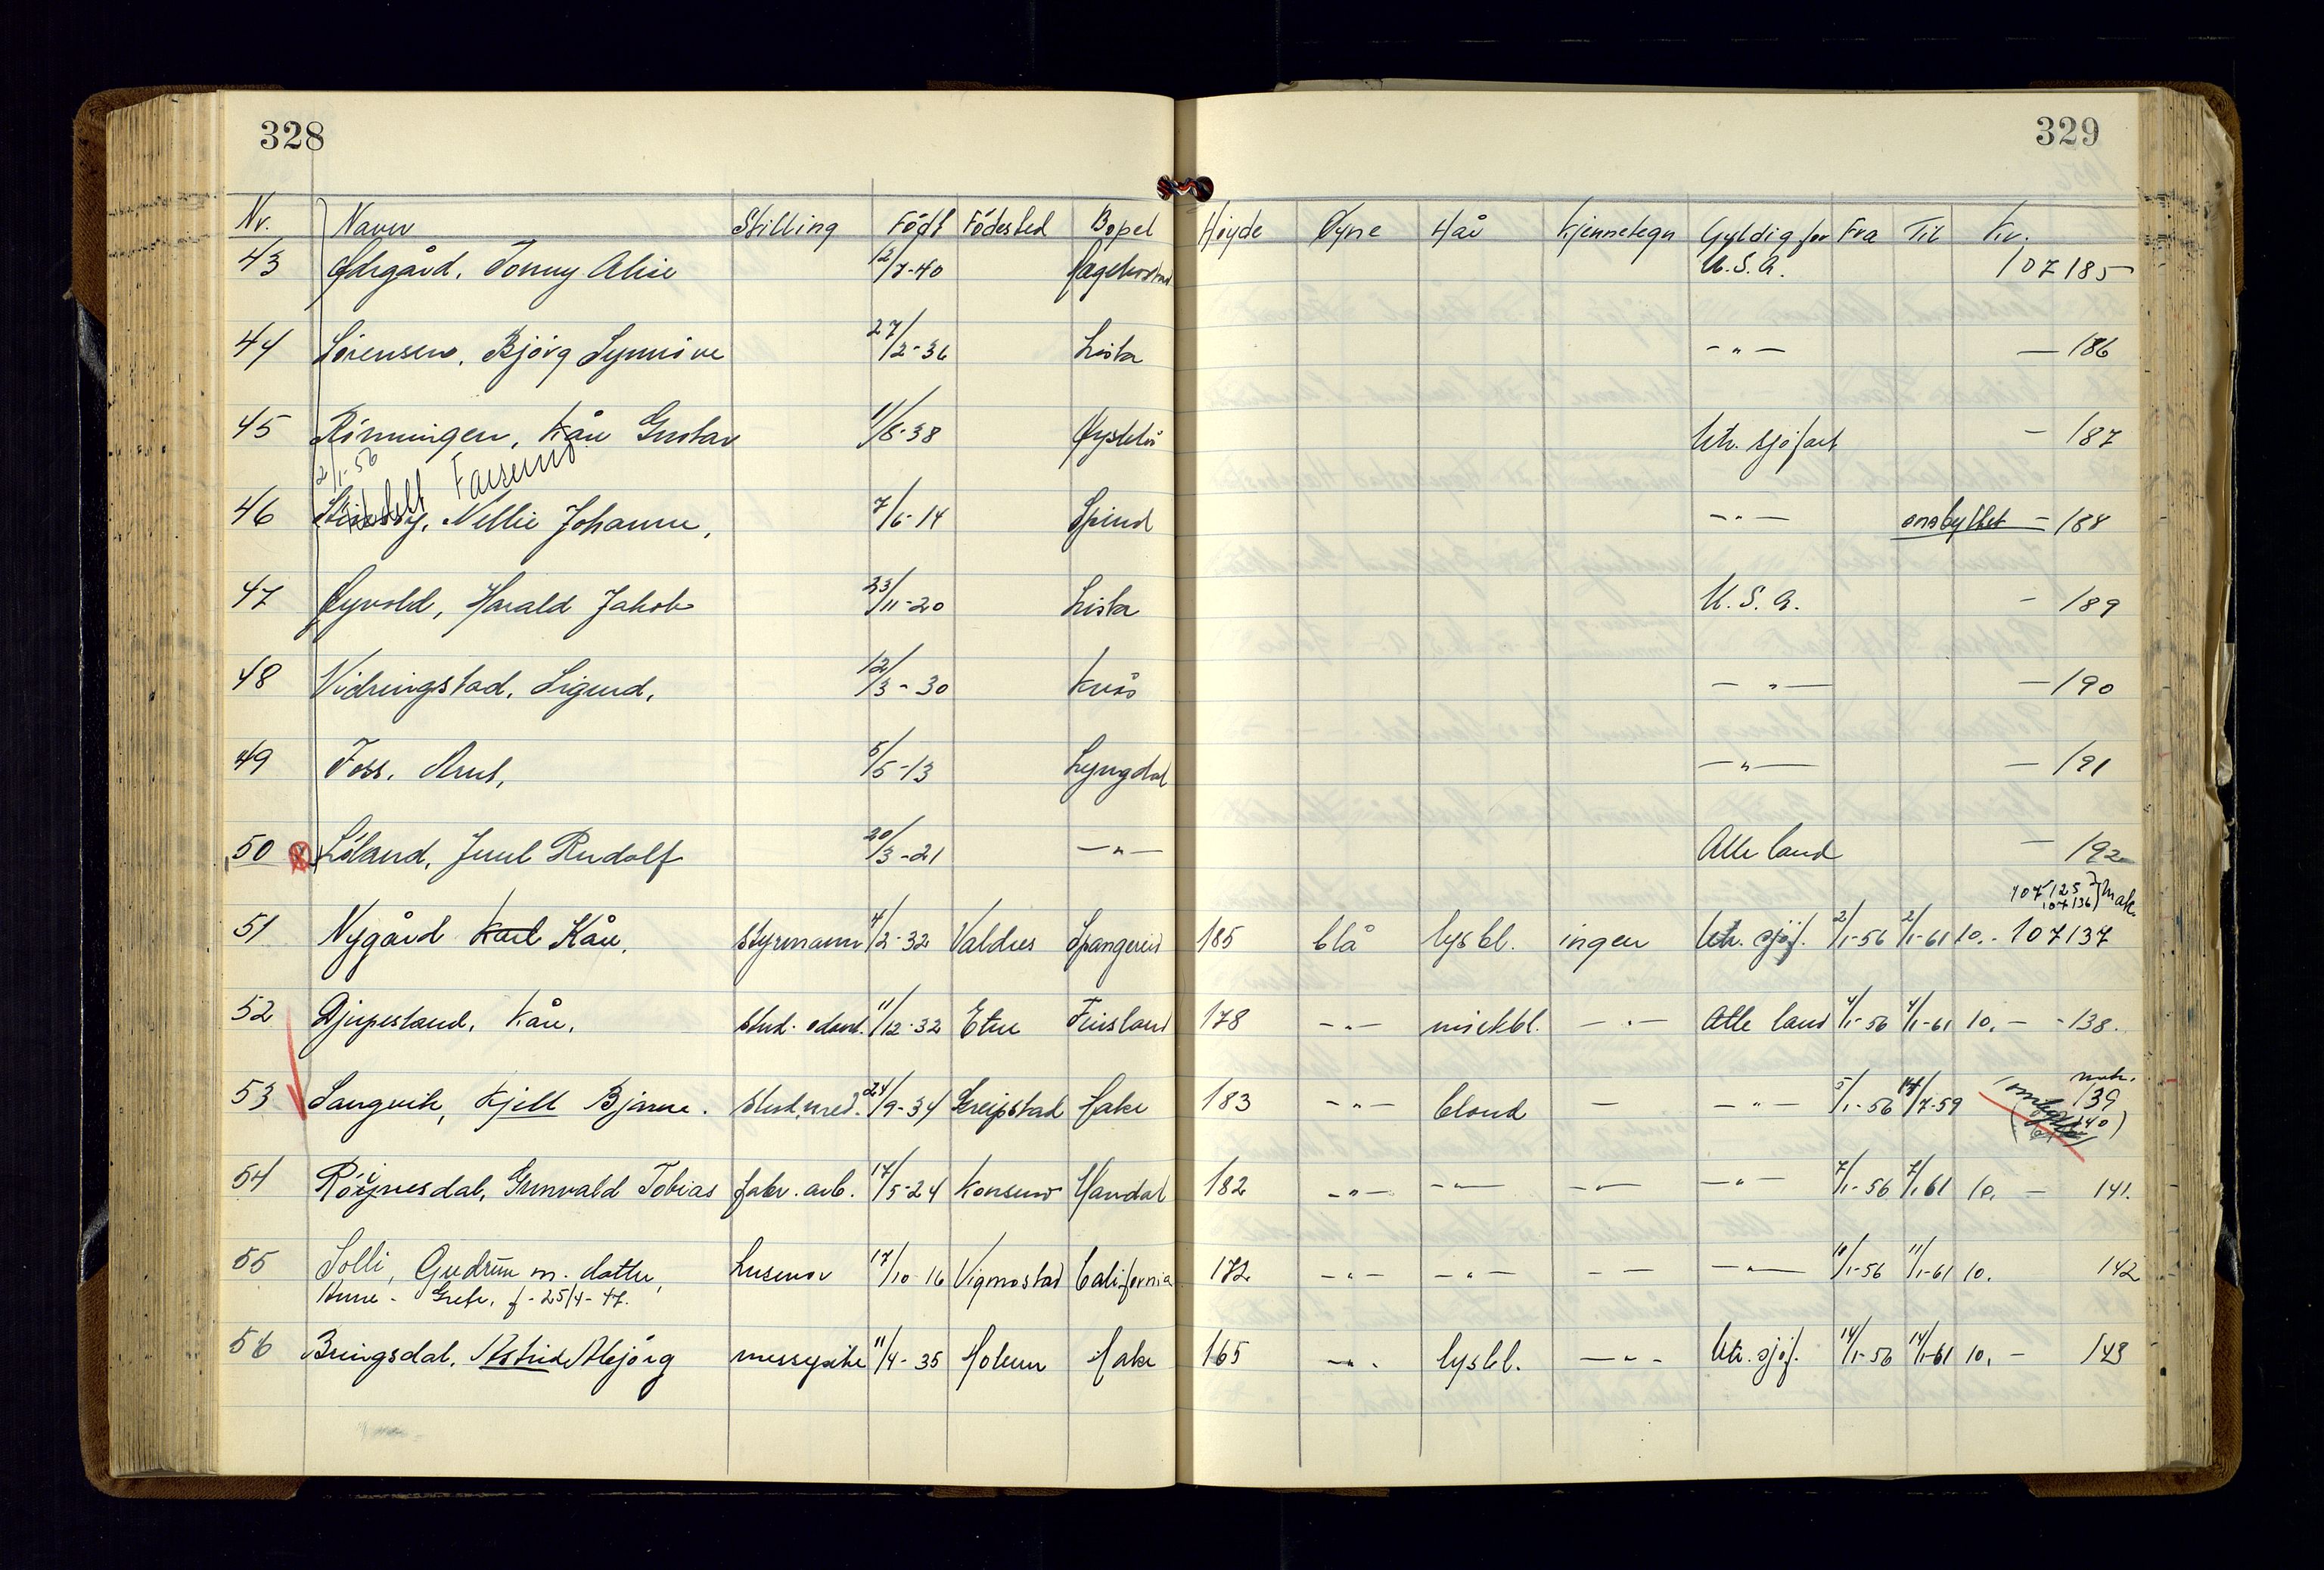 328
329
Nr. Navn Stilling Født Fødested Bopel Høyde Øyne Hår Kjennetegn Gyldig for Fra Til Kr.
43 Ødegård, Tonny Alise 12/7-40 Hægebostad U.S.A. 107185
44 Sørensen, Bjørg Synnöve 27/2-36 Lista -"- — 186
45 Rönningen, Kåre Gustav 1/8-38 Øyslebö Utr. sjöfart — 187
2/1-56 Farsund
46 Nellie Johanne, 7/6-14 Spind -"- ombyttet — 188
47 Øyvold, Harald Jakob 23/11-20 Lista U.S.A. — 189
48 Vidringstad, Sigurd, 12/3-30 Kvås -"- — 190
49 Foss, Arnt, 5/5-13 Lyngdal -"- — 191
50 Löland, Juul Rudolf 20/3-21 -"- Alle land — 192
107125
107136 } mak.
51 Nygård Karl Kåre, styrmann 4/2-32 Valdres Spangereid 185 blå lysbl. ingen Utr. sjöf. 2/1-56 2/1-61 10.- 107137
52 Djupesland, Kåre, stud. odont. 11/12-32 Etne Finsland 178 -"- mörkbl. -"- Alle land 4/1-56 4/1-61 10.- -138.
mak.
53 Langvik, Kjell Bjarne. stud. med. 24/9-34 Greipstad Hake 183 -"- blond — -"- 5/1-56 14/7-59 139
140)
54 Röjnesdal, Gunvald Tobias fabr. arb. 17/5-24 Konsmo Mandal 182 -"- -"- -"- -"- 7/1-56 7/1-61 10. — 141.
55 Solli, Gudrun m. datter, husmor 17/10-16 Vigmostad California 172 -"- -"- — — -"- 10/1-56 11/1-61 10. 142
Anne-Grete, f. 25/4-47.
56 Bringsdal, Astrid Abjörg messepike 11/4-35 Holum Hake 165 -"- lysbl. -"- Utr. sjöf. 14/1-56 14/1-61 10.- 143